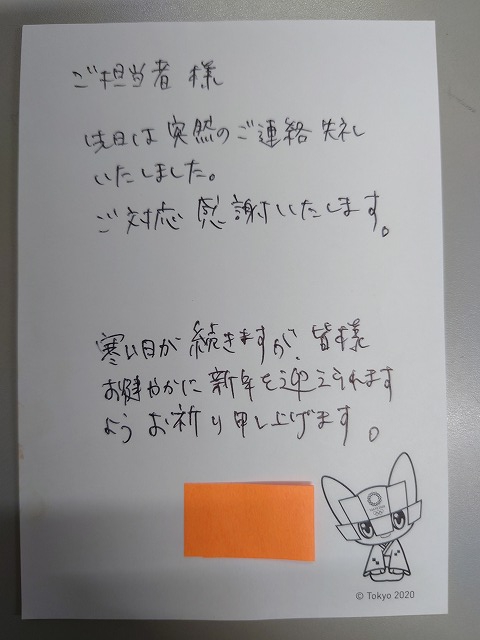 ご担当者 様
先日は 突然のご連絡 失礼
いたしました。
ご対応 感謝いたします。
寒い日が 続きますが、皆様
お健やかに 新年を迎えられます
よう お祈り申し上げます。
© Tokyo 2020